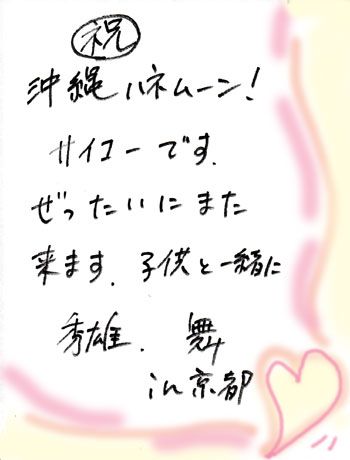 祝
沖縄ハネムーン!
サイコーです.
ぜったいにまた
来ます. 子供と一緒に
秀雄. 舞
in 京都